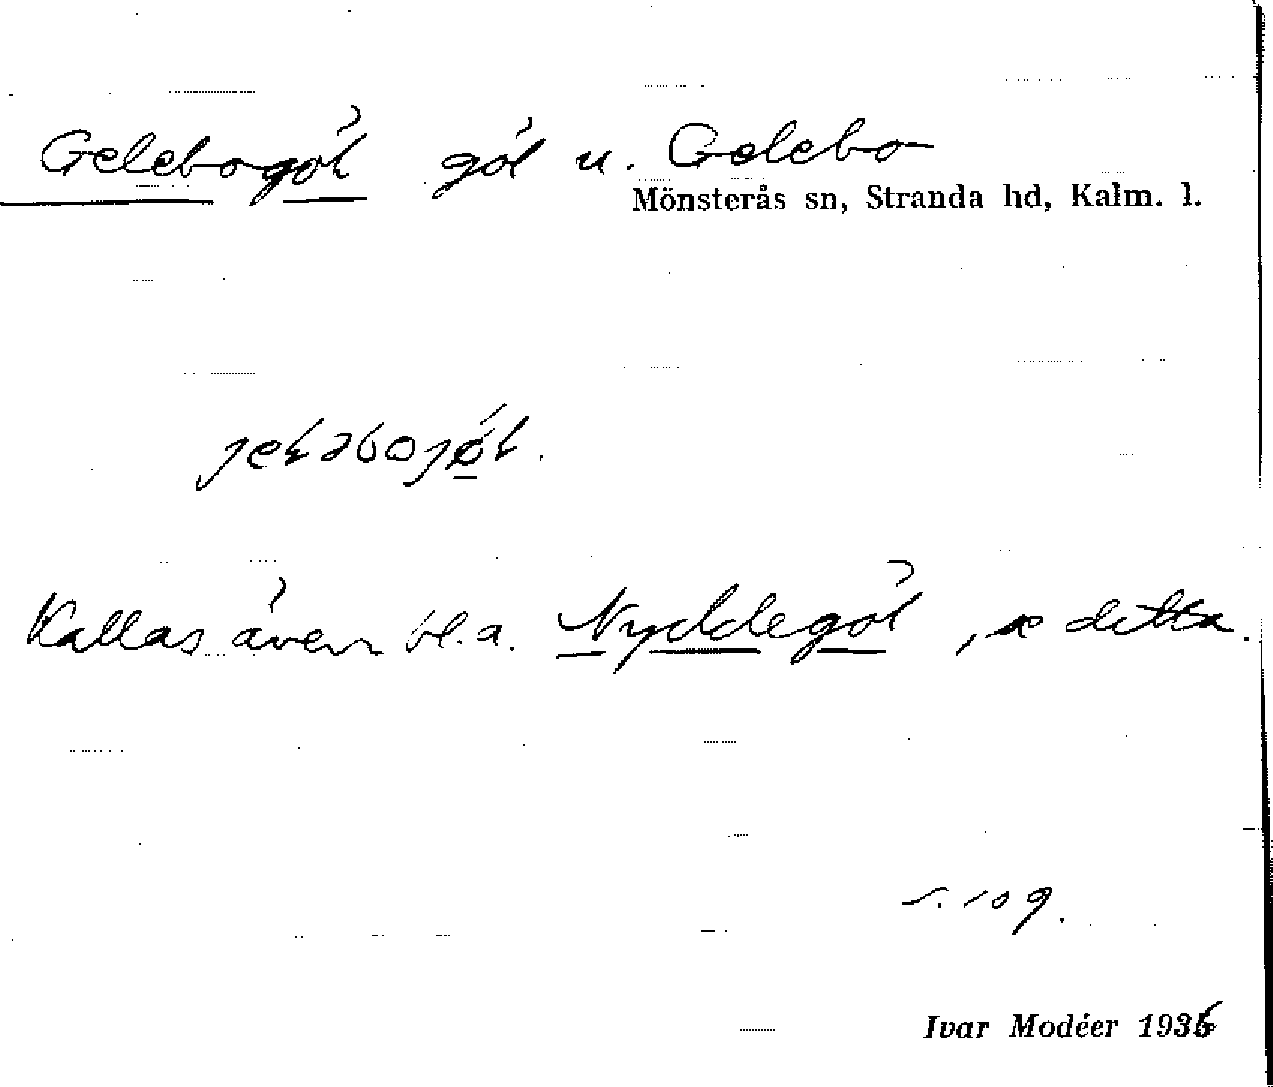 Gelebogöl göl u. Gelebo
Mönsterås sn, Stranda hd, Kalm. l.
Kallas även bl.a. Nyddegöl, se detta.
s. 109.
Ivar Modéer 1936